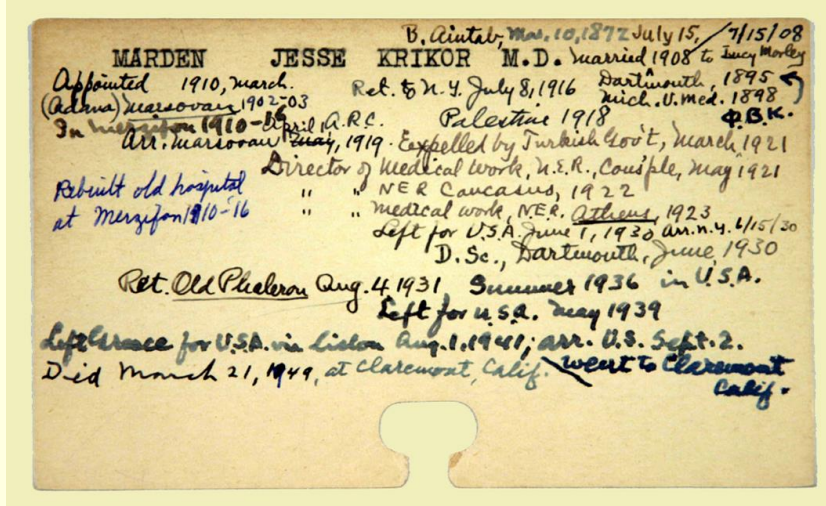 B. Aintab, Mar. 10, 1872 July 15, / 7/15/08
MARDEN JESSE KRIKOR M.D. married 1908 to Lucy Morley
Appointed 1910, March. Ret. to N.Y. July 8, 1916 Dartmouth, 1895
(Adana) Marsovan 1902-03 Mich. U. Med. 1898
In Merzifon 1910-16 April 1, A.R.C. Palestine 1918 Φ.B.K.
Arr. Marsovan May, 1919. Expelled by Turkish Gov't, March 1921
Director of Medical Work, N.E.R., Cons'ple, May 1921
Rebuilt old hospital " " NER Caucasus, 1922
at Merzifon 1910-16 " " Medical work, N.E.R. Athens, 1923
Left for U.S.A. June 1, 1930 arr. N.Y. 6/15/30
D.Sc., Dartmouth, June, 1930
Ret. Old Phaleron Aug. 4 1931 Summer 1936 in U.S.A.
Left for U.S.A. May 1939
Left Greece for U.S.A. via Lisbon Aug. 1, 1941; arr. U.S. Sept. 2.
Died March 21, 1949, at Claremont, Calif. \ went to Claremont
Calif.